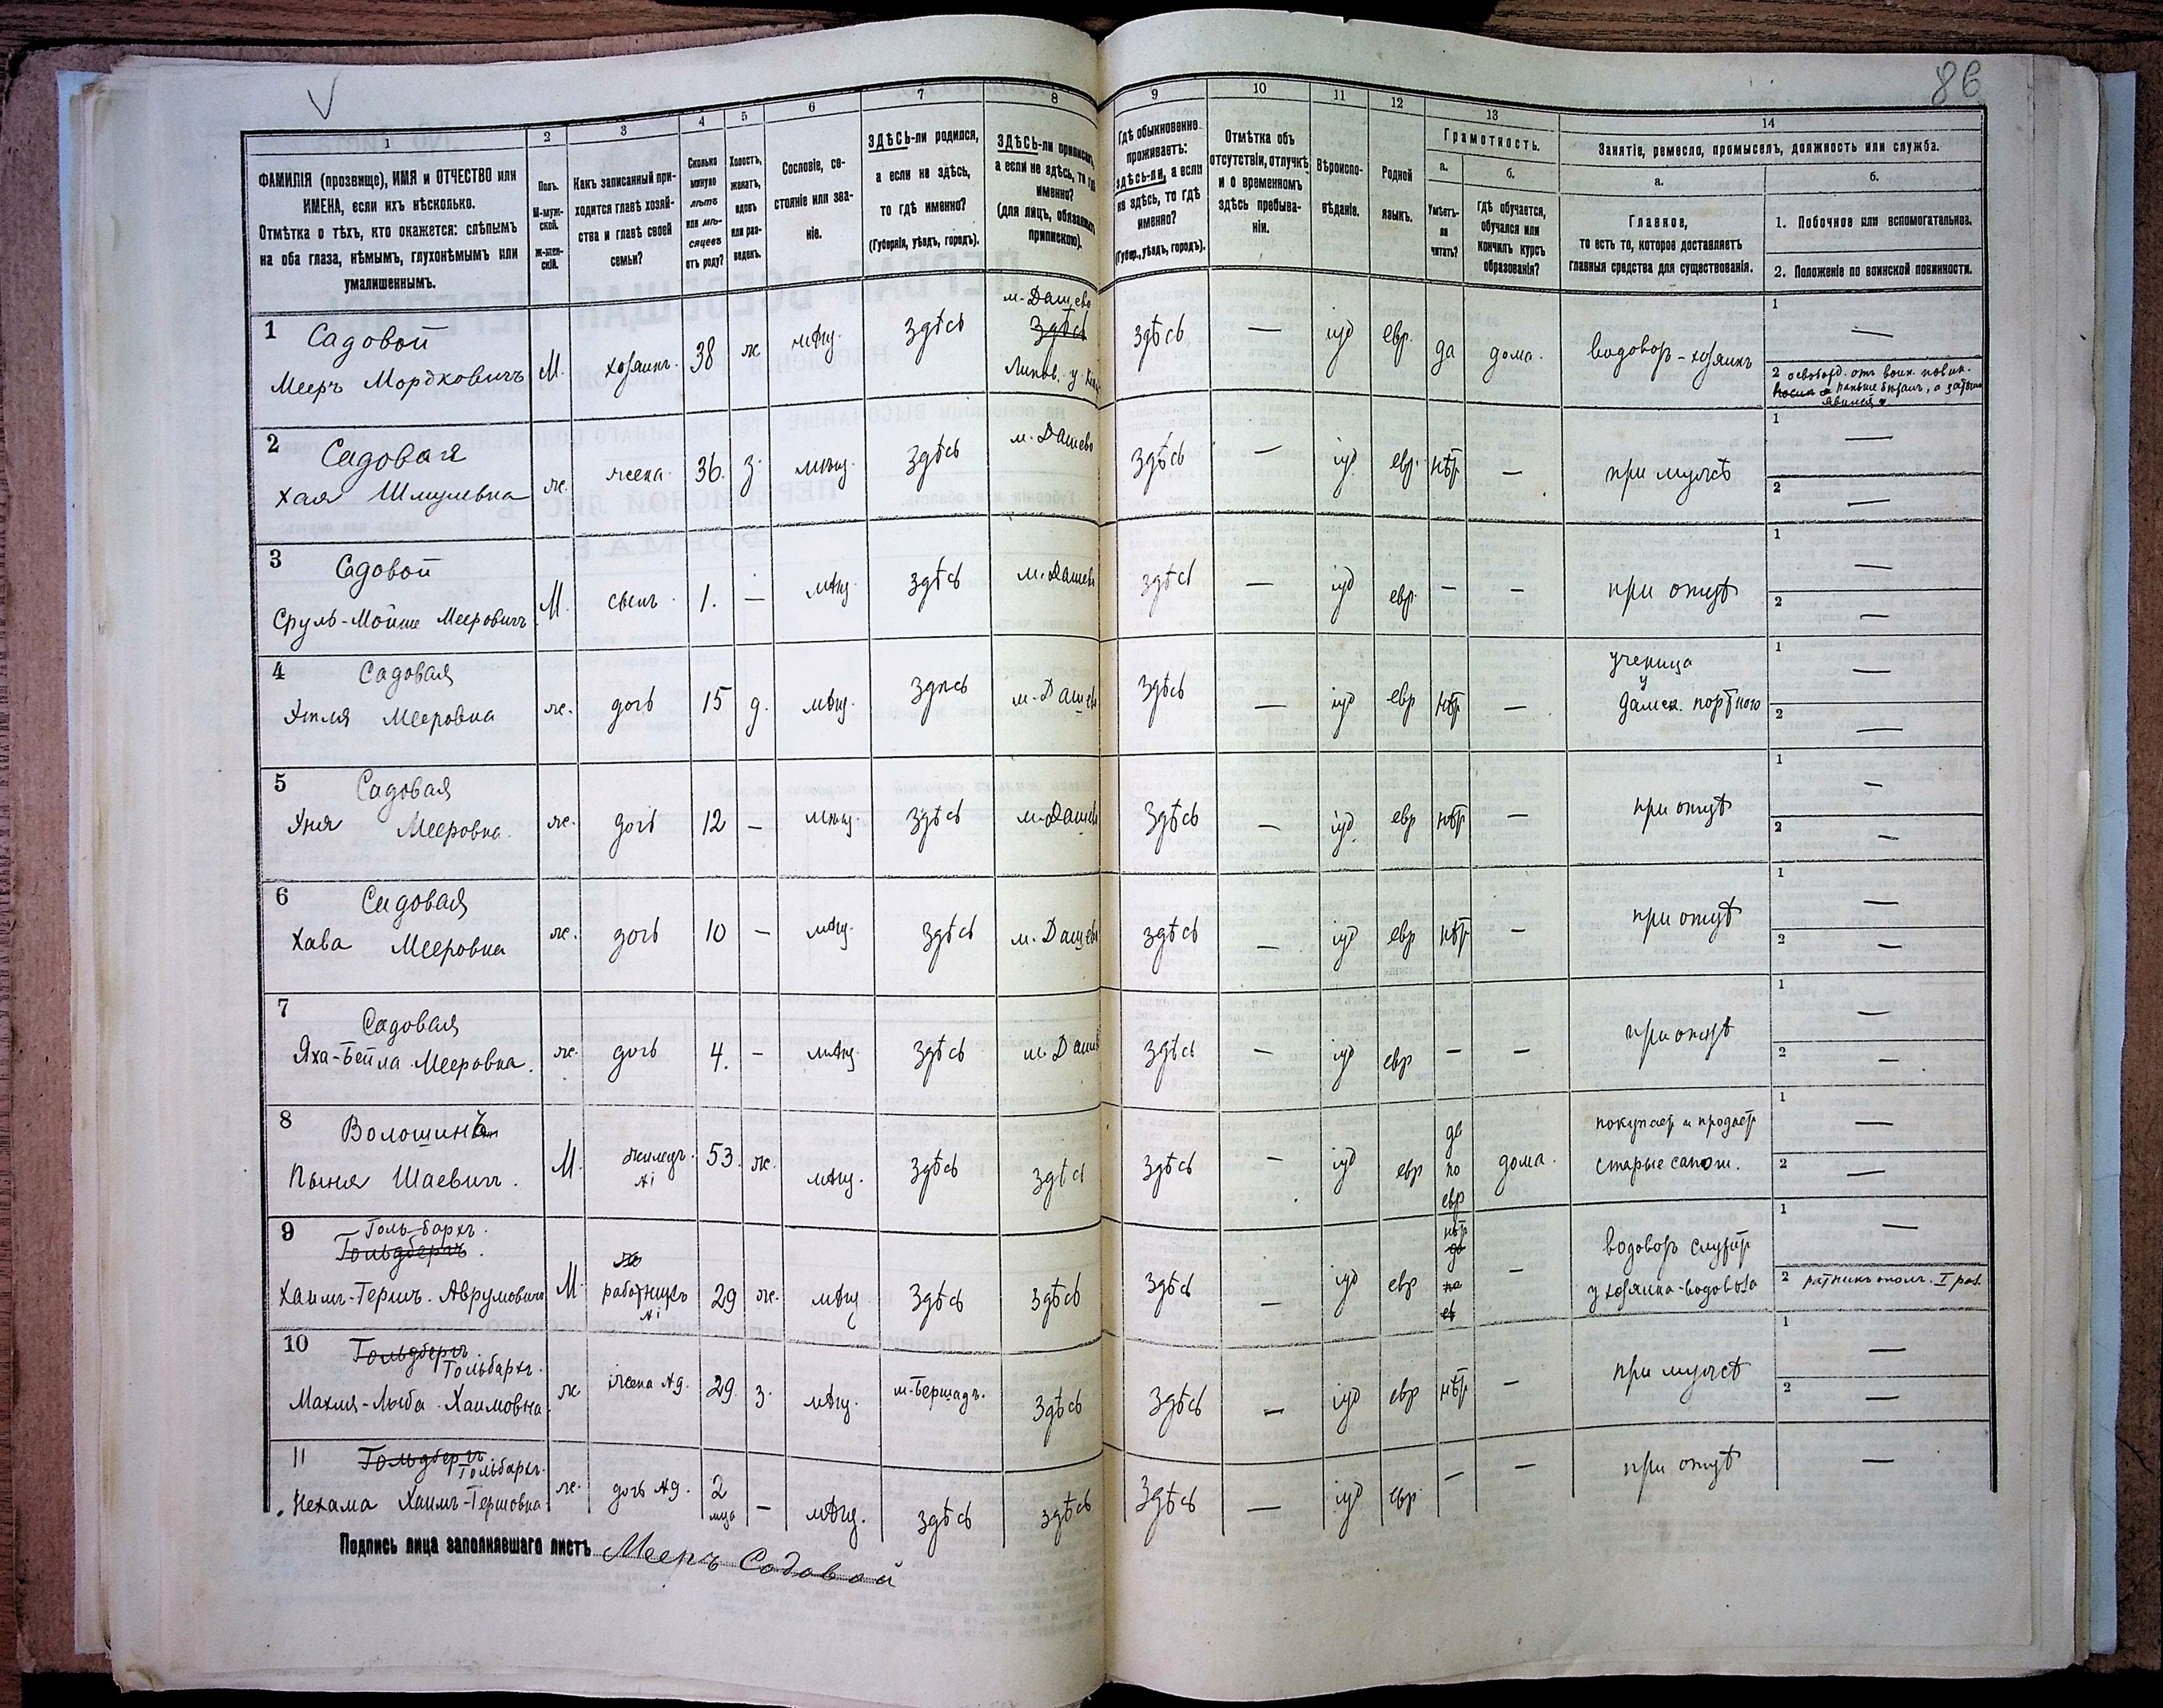 86
1
2
3
4
5
6
7
8
9
10
11
12
13
14
ФАМИЛІЯ (прозвище), ИМЯ и ОТЧЕСТВО или
ИМЕНА, если ихъ нѣсколько.
Отмѣтка о тѣхъ, кто окажется: слѣпымъ
на оба глаза, нѣмымъ, глухонѣмымъ или
умалишеннымъ.
Полъ.
М-муж-
ской.
Ж-жен-
скій.
Какъ записанный при-
ходится главѣ хозяй-
ства и главѣ своей
семьи?
Сколько
минуло
лѣтъ
или мѣ-
сяцевъ
отъ роду?
Холостъ,
женатъ,
вдовъ
или раз-
веденъ.
Сословіе, со-
стояніе или зва-
ніе.
ЗДѢСЬ-ли родился,
а если не здѣсь,
то гдѣ именно?
(Губернія, уѣздъ, городъ).
ЗДѢСЬ-ли приписанъ,
а если не здѣсь, то гдѣ
именно?
(для лицъ, обязанныхъ
припискою).
Гдѣ обыкновенно
проживаетъ:
здѣсь-ли, а если
не здѣсь, то гдѣ
именно?
(Губер., уѣздъ, городъ).
Отмѣтка объ
отсутствіи, отлучкѣ
и о временномъ
здѣсь пребыва-
ніи.
Вѣроиспо-
вѣданіе.
Родной
языкъ.
Грамотность.
а.
Умѣетъ-
ли
читать?
б.
Гдѣ обучается,
обучался или
кончилъ курсъ
образованія?
Занятіе, ремесло, промыселъ, должность или служба.
а.
Главное,
то есть то, которое доставляетъ
главныя средства для существованія.
б.
1. Побочное или вспомогательное.
2. Положеніе по воинской повинности.
1 Садовой
Мееръ Мордковичъ М. хозяинъ 38 ж мѣщ. здѣсь м. Дашево
здѣсь
Липов. у.
здѣсь — іуд евр. да дома. водовозъ-хозяинъ 1 —
2 освобожд. отъ воин. повин.
2 Садовая
Хая Шмулевна же. жена 36. з. мѣщ. здѣсь м. Дашево здѣсь — іуд евр. нѣт — при мужѣ 1 — 2 —
3 Садовой
Сруль-Мойше Мееровичъ М. сынъ 1. — мѣщ здѣсь м. Дашев здѣсь — іуд евр. — — при отцѣ 1 — 2 —
4 Садовая
Этля Мееровна же. дочь 15 д. мѣщ. здѣсь м. Дашев здѣсь — іуд евр нѣт — ученица
у
дамск. портного 1 — 2 —
5 Садовая
Эня Мееровна же. дочь 12 — мѣщ. здѣсь м. Дашев здѣсь — іуд. евр нѣт — при отцѣ 1 — 2 —
6 Садовая
Хава Мееровна же. дочь 10 — мѣщ. здѣсь м. Дашев здѣсь — іуд евр нѣт — при отцѣ 1 — 2 —
7 Садовая
Яха-Бейла Мееровна. же. дочь 4. — мѣщ здѣсь м. Даш здѣсь — іуд евр — — при отцѣ 1 — 2 —
8 Волошинъ
Пыня Шаевич. М. жилецъ 53. же. мѣщ. здѣсь здѣсь здѣсь — іуд евр да
по
евр дома. покупает и продает
старые сапоги. 1 — 2 —
9 Гольбархъ.
Гольдбергъ.
Хаимъ-Гершъ Аврумовичъ М. работникъ 29 же. мѣщ здѣсь здѣсь здѣсь — іуд евр нѣт
да
по
ев — водовоз служит
у хозяина-водовоза 1 — 2 ратникъ ополч. I раз.
10 Гольдбергъ
Гольбархъ.
Махля-Лыба Хаимовна же жена №9. 29. з. мѣщ. м. Бершадь. здѣсь здѣсь — іуд евр нѣт — при мужѣ 1 — 2 —
11 Гольдбергъ
Гольбархъ.
Нехама Хаимъ-Гершовна же. дочь №9. 2
мца — мѣщ. здѣсь здѣсь здѣсь — іуд евр. — — при отцѣ —
Подпись лица заполнявшаго листъ Мееръ Садовой